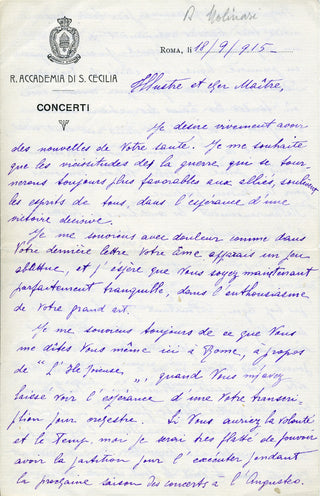 B Molinari
Roma, li 18/9/915_
R. ACCADEMIA DI S. CECILIA
CONCERTI
Illustre et cher Maître,
Je desire vivement avoir
des nouvelles de Votre santé. Je me souhaite
que les vicissitudes de la guerre, qui se tour
nerons toujours plus favorables aux alliés, soulèvent
les esprits de tous, dans l'espérance d'une
victoire decisive.
Je me souviens avec douleur comme dans
Votre dernière lettre Votre âme apparais un peu
abattue, et j'éspère que Vous soyez maintenant
parfaitement tranquille, dans l'enthousiasme
de Votre grand art.
Je me souviens toujours de ce que Vous
me dites Vous même ici à Rome, à propos
de "L'Isle Joyeuse
„, quand Vous m'avez
laissé voir l'espérance d'une Votre transcri-
ption pour orchestre. Si Vous auriez la volonté
et le temp, moi je serai très flatté de pouvoir
avoir la partition pour l'exécuter pendant
la prochaine saison des concerts à l'Augusteo.